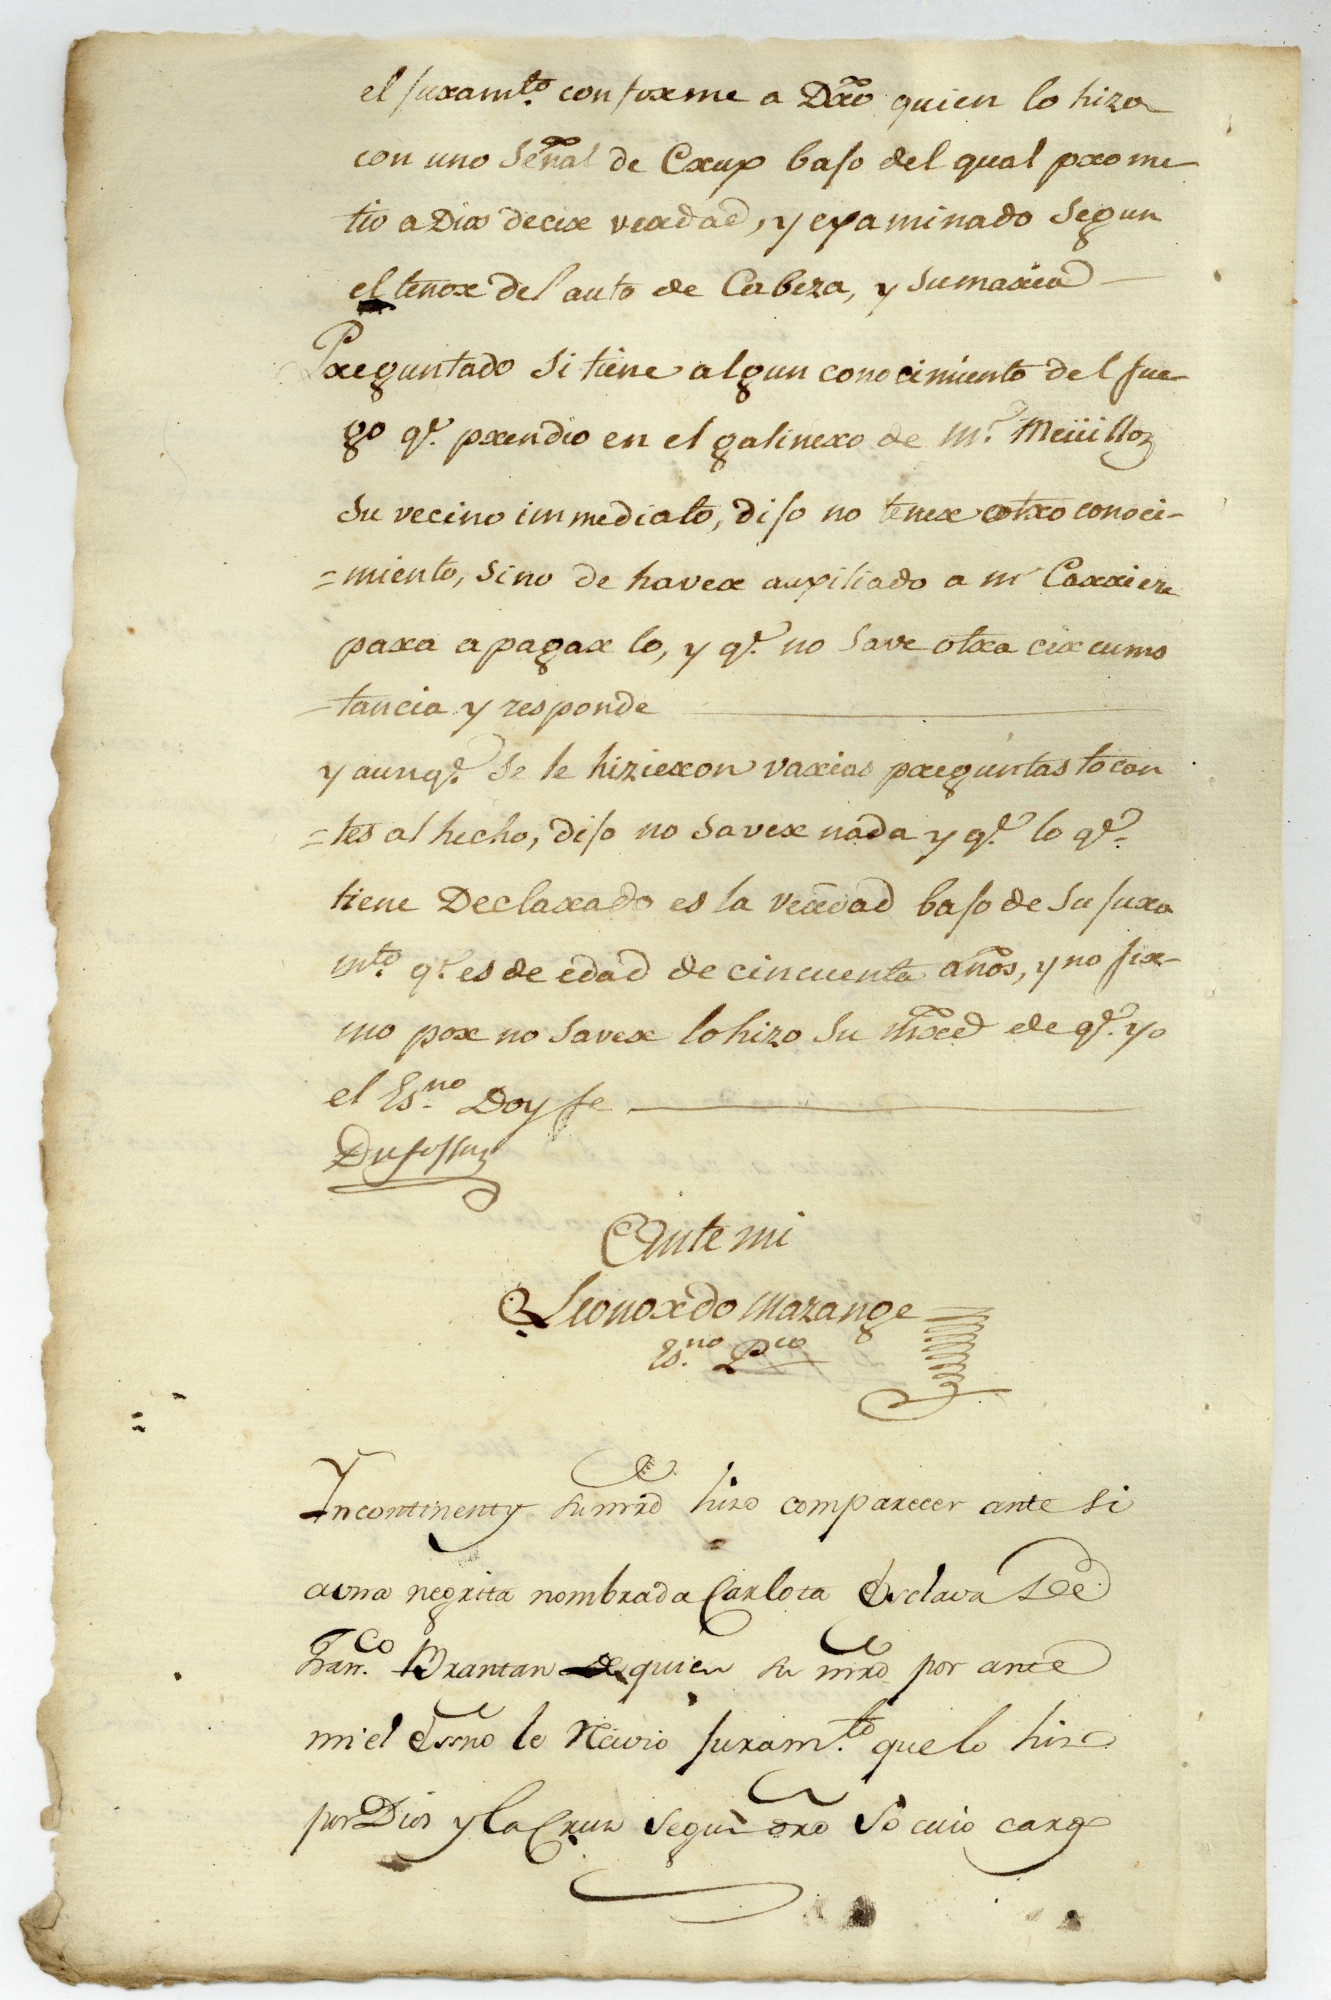 el juramto. conforme a Dro quien lo hizo
con uno Señal de Crux bajo del qual prome-
tio a Dios decir verdad, y examinado segun
el tenor del auto de Cabeza, y sumaria
Preguntado si tiene algun conocimiento del fue-
go qe. prendio en el galinero de Mr. Meüilloz
su vecino immediato, dijo no tener otro conoci-
=miento, sino de haver auxiliado a mr Carriere
para apagar lo, y qe. no save otra circums
-tancia y responde
y aunqe. se le hizieron varias preguntas tocan
=tes al hecho, dijo no saver nada y qe. lo qe.
tiene Declarado es la verdad bajo de su jura
mto. qe. es de edad de cincuenta años, y no fir-
mo por no saver lo hizo su mrced de qe. yo
el Esno. Doy fe
Dufossat
Ante mi
Leonardo Mazange
Esno. Pco
Yncontinenty su mrd hizo comparecer ante si
a una negrita nombrada Carlota Esclava De
Franco. Brantan de quien su mrd por ante
mi el Essno le Recivio juramto. que lo hizo
por Dios y la Cruz segun dro so cuio cargo